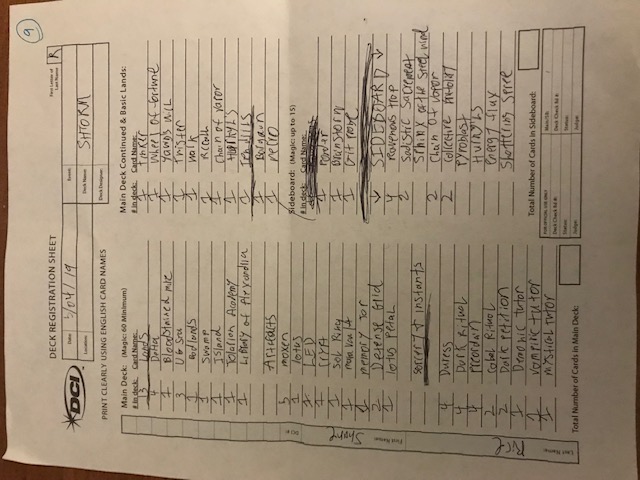 9
DECK REGISTRATION SHEET
First Letter of
Last Name:
R
DCI
Date: 5/04/19
Event:
Location:
Deck Name: SHTORM
Deck Designer:
PRINT CLEARLY USING ENGLISH CARD NAMES
Main Deck: (Magic: 60 Minimum)
# in deck: Card Name:
13 Lands
4 Delta
1 Bloodstained mire
3 U G Sea
1 Badlands
1 Swamp
1 Island
1 Tolarian Academy
1 Library of Alexandria
Artifacts
5 moxen
1 lotus
1 LED
1 crypt
1 Sol Ring
1 mana vault
1 memory Jar
2 Defense Grid
1 lotus petal
sorcery + instants
4 Duress
4 Dark Ritual
4 Preordain
2 Cabal Ritual
2 Dark petition
1 Demonic tutor
1 vampiric tutor
1 mystical tutor
Total Number of Cards in Main Deck:
Main Deck Continued & Basic Lands:
# in deck: Card Name:
1 tinker
1 wheel of fortune
1 yawg's will
1 twister
1 walk
1 Recall
1 chain of vapor
1 Hurkyl's
1 Tendrils
1 Bargain
1 necro
Sideboard: (Magic: up to 15)
# in deck: Card Name:
1 ponder
1 Brainstorm
1 Git probe
↓ SIDEBOARD ↓
4 Ravenous trap
2 Sadistic Sacrement
Sphinx of the Steel wind
2 Chain of vapor
2 Collective
Pyroblast
Hurkyl's
energy flux
Shattering Spree
Total Number of Cards in Sideboard:
FOR OFFICIAL USE ONLY
Main/SB: /
Deck Check Rd #:
Deck Check Rd #:
Status:
Status:
Judge:
Judge:
DCI #:
First Name: Shane
Last Name: Rice